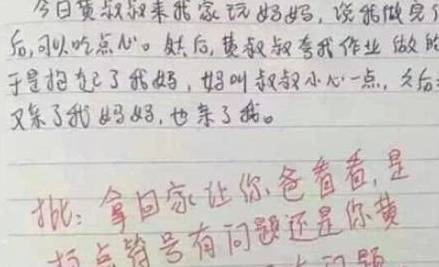 今日黄叔叔来我家玩妈妈,说我做完作
后,可以吃点心。然后,黄叔叔夸我作业做的
于是抱起了我妈,妈叫叔叔小心一点,之后
又亲了我妈妈,也亲了我。
批:拿回家让你爸看看,是
标点符号有问题还是你黄
问题